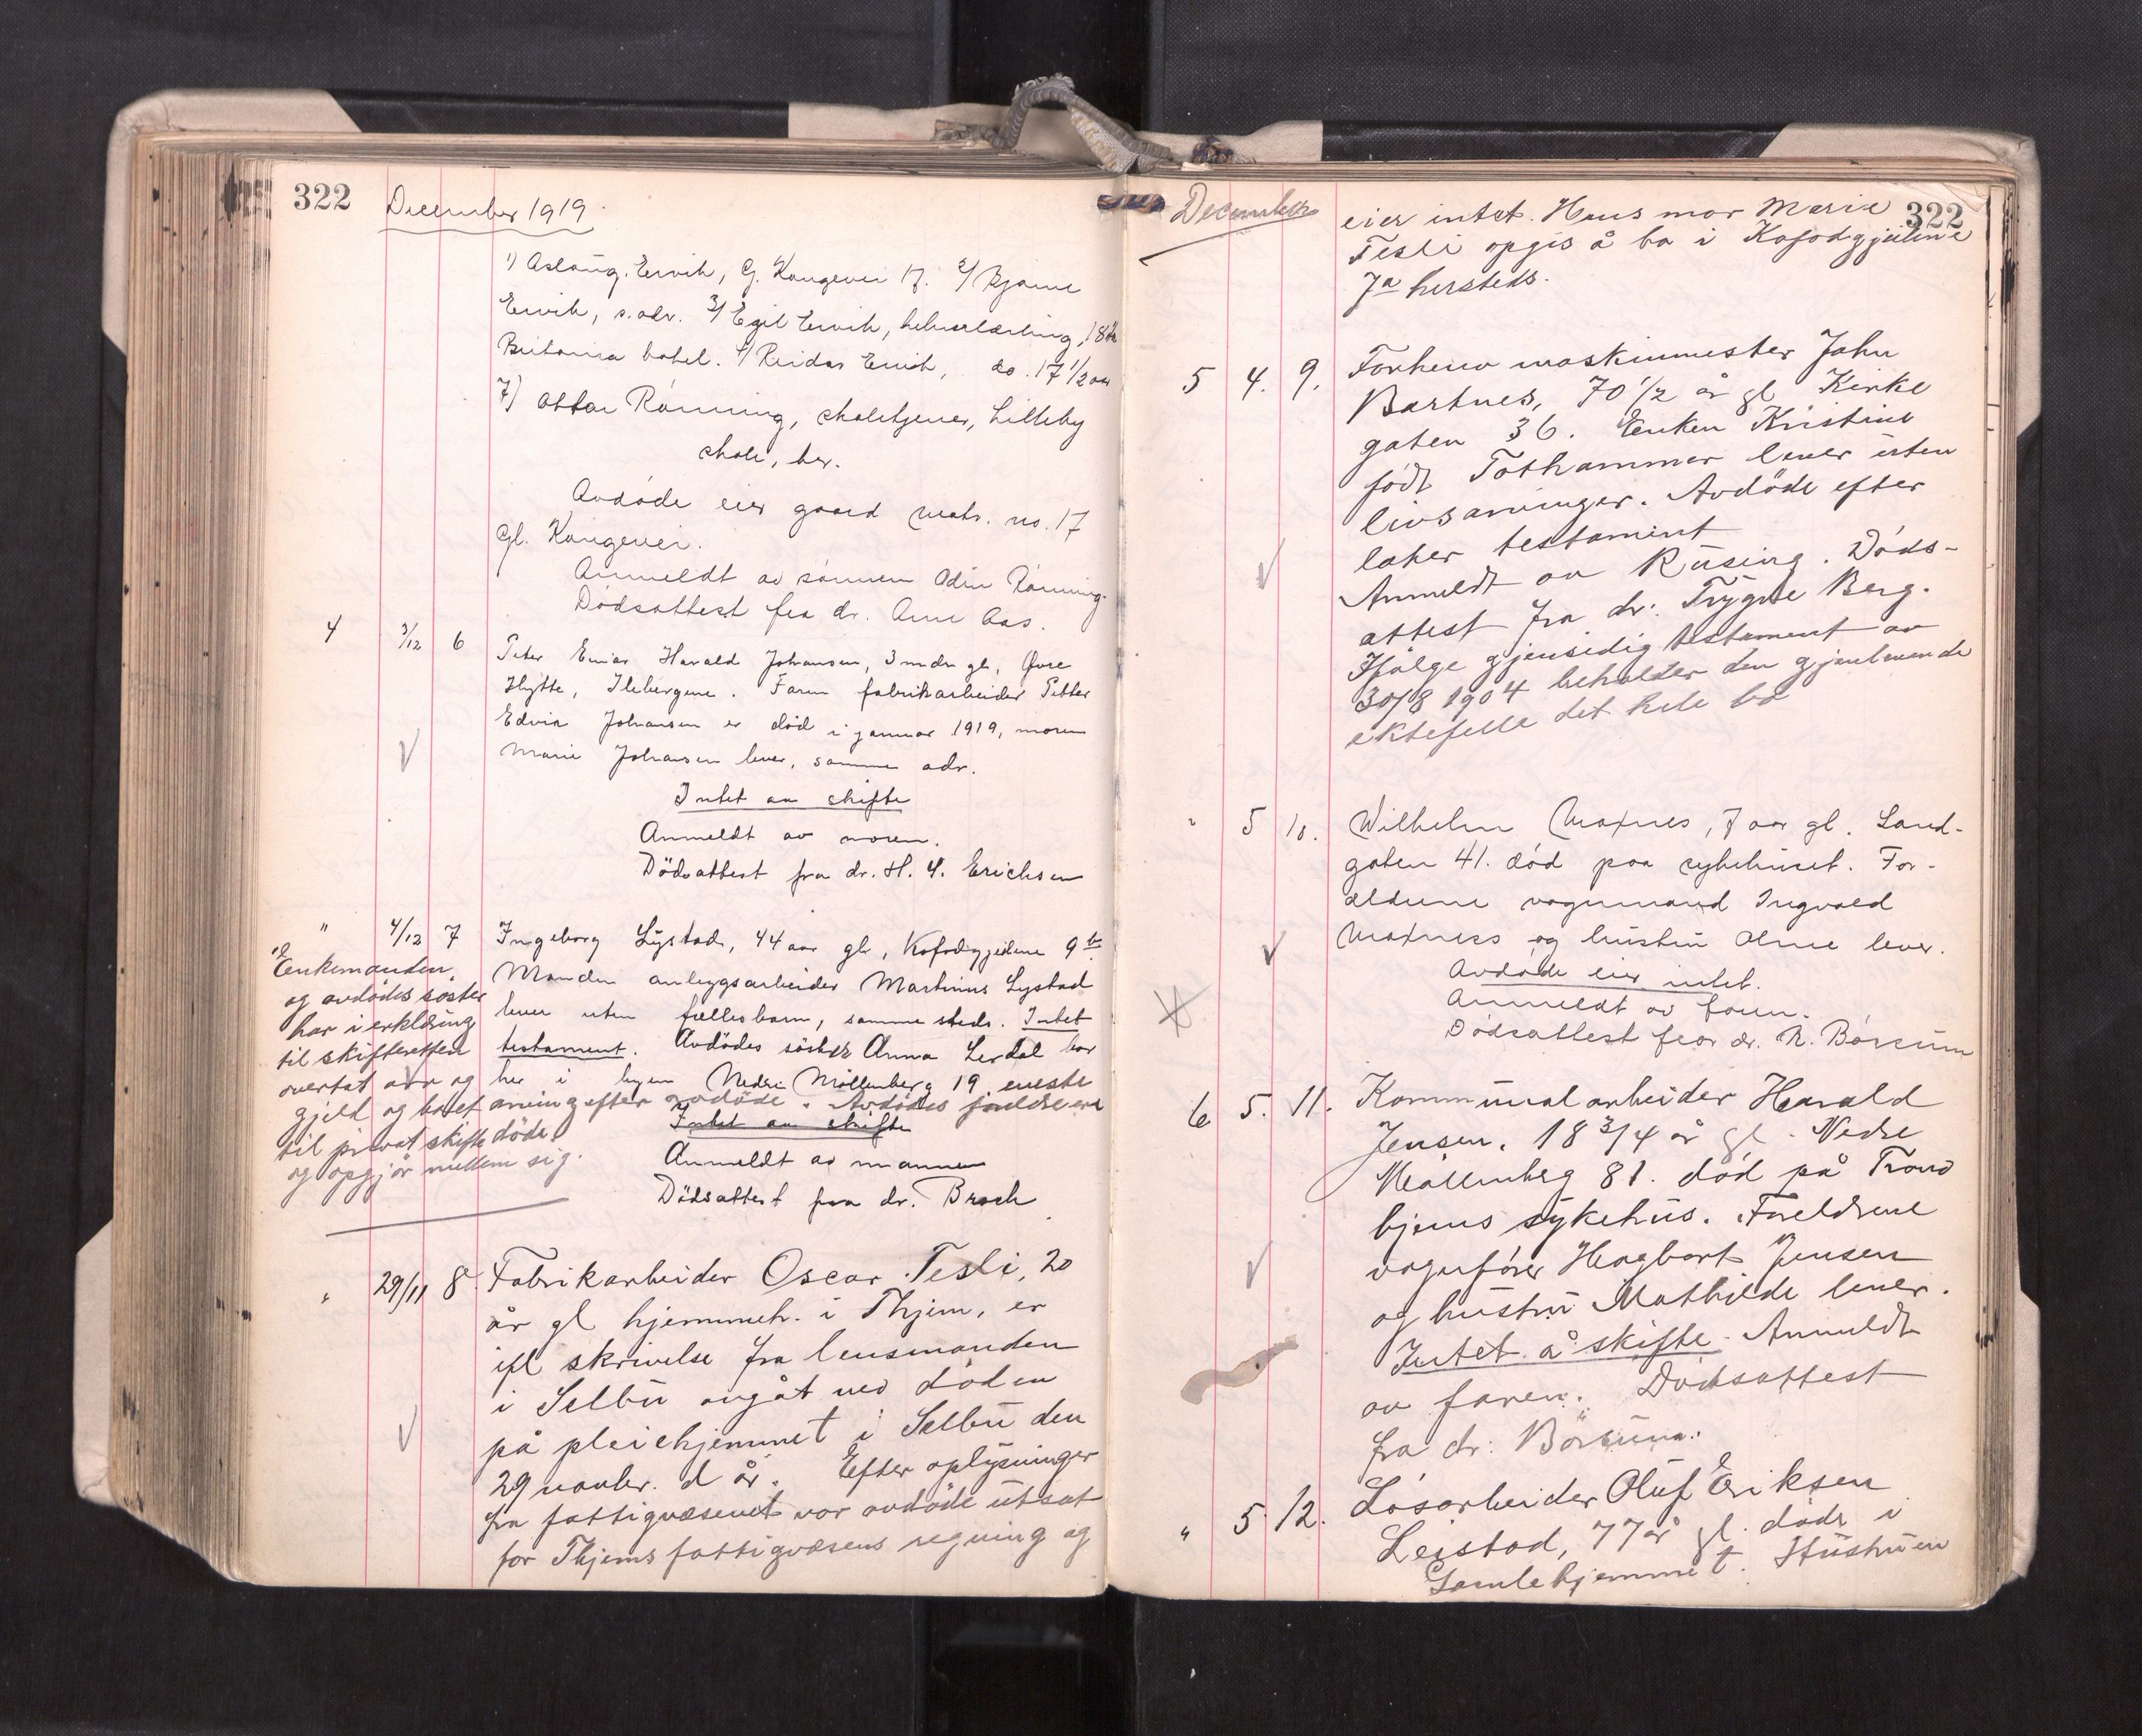 322 December 1919.
1) Aslaug Ervik, G. Kongevei 17. 2/ Bjarne
Ervik, s. adr. 3/ Egil Ervik, kelnerlærling, 18 år
Britania hotel. 4/ Reidar Ervik, do. 17 1/2 aar
7) Ottar Rönning, skoletjener, Lilleby
skole, her.
Avdöde eier gaard matr. no. 17
Gl. Kongevei.
Anmeldt av sönnen Odin Rönning.
Dödsattest fra dr. Arne Aas.
4 3/12 6 Peter Einar Harald Johansen, 3 mdr gl., Övre
Hytte, Ilebergene. Faren fabrikarbeider Petter
Edvin Johansen er död i januar 1919, moren
Marie Johansen lever, samme adr.
Intet aa skifte
Anmeldt av moren.
Dödsattest fra dr. H. Y. Erichsen
" 4/12 7 Ingeborg Lystad, 44 aar gl., Kofodgjeilene 9 b.
Manden anlegsarbeider Martinus Lystad
lever uten fællesbarn, samme steds. Intet
testament. Avdödes söster Anna Lerdal bor
her i byen Nedre Möllenberg 19 eneste
arving efter avdöde. Avdödes foreldre er
döde.
Intet aa skifte
Anmeldt av mannen
Dödsattest fra dr. Broch
Enkemanden
og avdödes söster
har i erklæring
til skifteretten
overtat arv og
gjeld og boet
til privat skifte
og opgjör mellem sig.
" 29/11 8. Fabrikarbeider Oscar Tesli, 20
år gl hjemmeh. i Thjem, er
ifl skrivelse fra lensmanden
i Selbu avgåt ved döden
på pleiehjemmet i Selbu den
29 novbr. d år. Efter oplysninger
fra fattigvæsenet var avdöde utsat
for Thjems fattigvæsens regning og
December 322
eier intet. Hans mor Marie
Tesli opgis å bo i Kofodgjeilene
7a hersteds.
5 4. 9. Forhenv maskinmester John
Bartnes, 70 1/2 år gl Kirke
gaten 36. Enken Kristine
född Tothammer lever uten
livsarvinger. Avdöde efter
later testament
Anmeldt av Rusing. Döds-
attest fra dr: Trygve Berg.
Ifölge gjensidig testament av
30/8 1904 beholder den gjenlevende
ektefelle det hele bo
" 5 10. Wilhelm Moxnes, 7 aar gl. Sand-
gaten 41. död paa sykehuset. For-
ældrene vognmand Ingvald
Moxness og hustru Oline lever.
Avdöde eier intet.
Anmeldt av faren.
Dödsattest fra dr. N. Börsum
6 5. 11. Kommunalarbeider Harald
Jensen, 18 3/4 år gl. Nedre
Möllenberg 81. död på Trond
hjems sykehus. Foreldrene
vognförer Hagbart Jensen
og hustru Mathilde lever.
Intet å skifte. Anmeldt
av faren. Dödsattest
fra dr: Börsum.
" 5. 12. Lösarbeider Oluf Eriksen
Leistad, 77 år gl. döde i
Gamlehjemmet. Hustruen